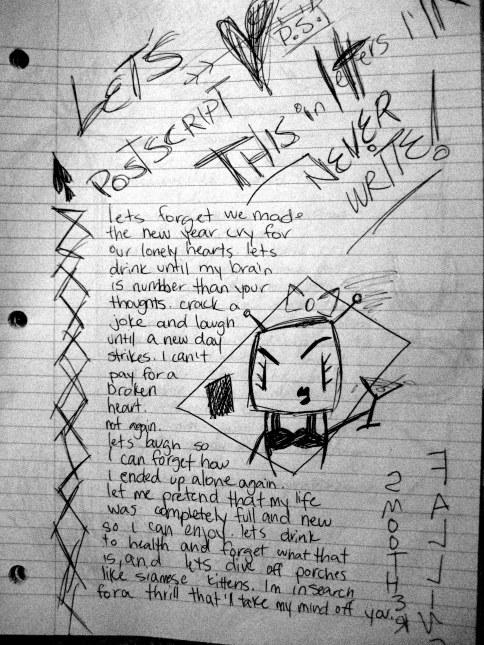 LET'S
P.S.
POSTSCRIPT
THIS in letters I'll
NEVER
WRITE!
lets forget we made
the new year cry for
our lonely hearts lets
drink until my brain
is number than your
thoughts. crack a
joke and laugh
until a new day
strikes. I can't
pay for a
broken
heart.
not again.
lets laugh so
I can forget how
I ended up alone again.
let me pretend that my life
was completely full and new
so i can enjoy. lets drink
to health and forget what that
is, and lets dive off porches
like siamese kittens. Im in search
for a thrill that'll take my mind off you.